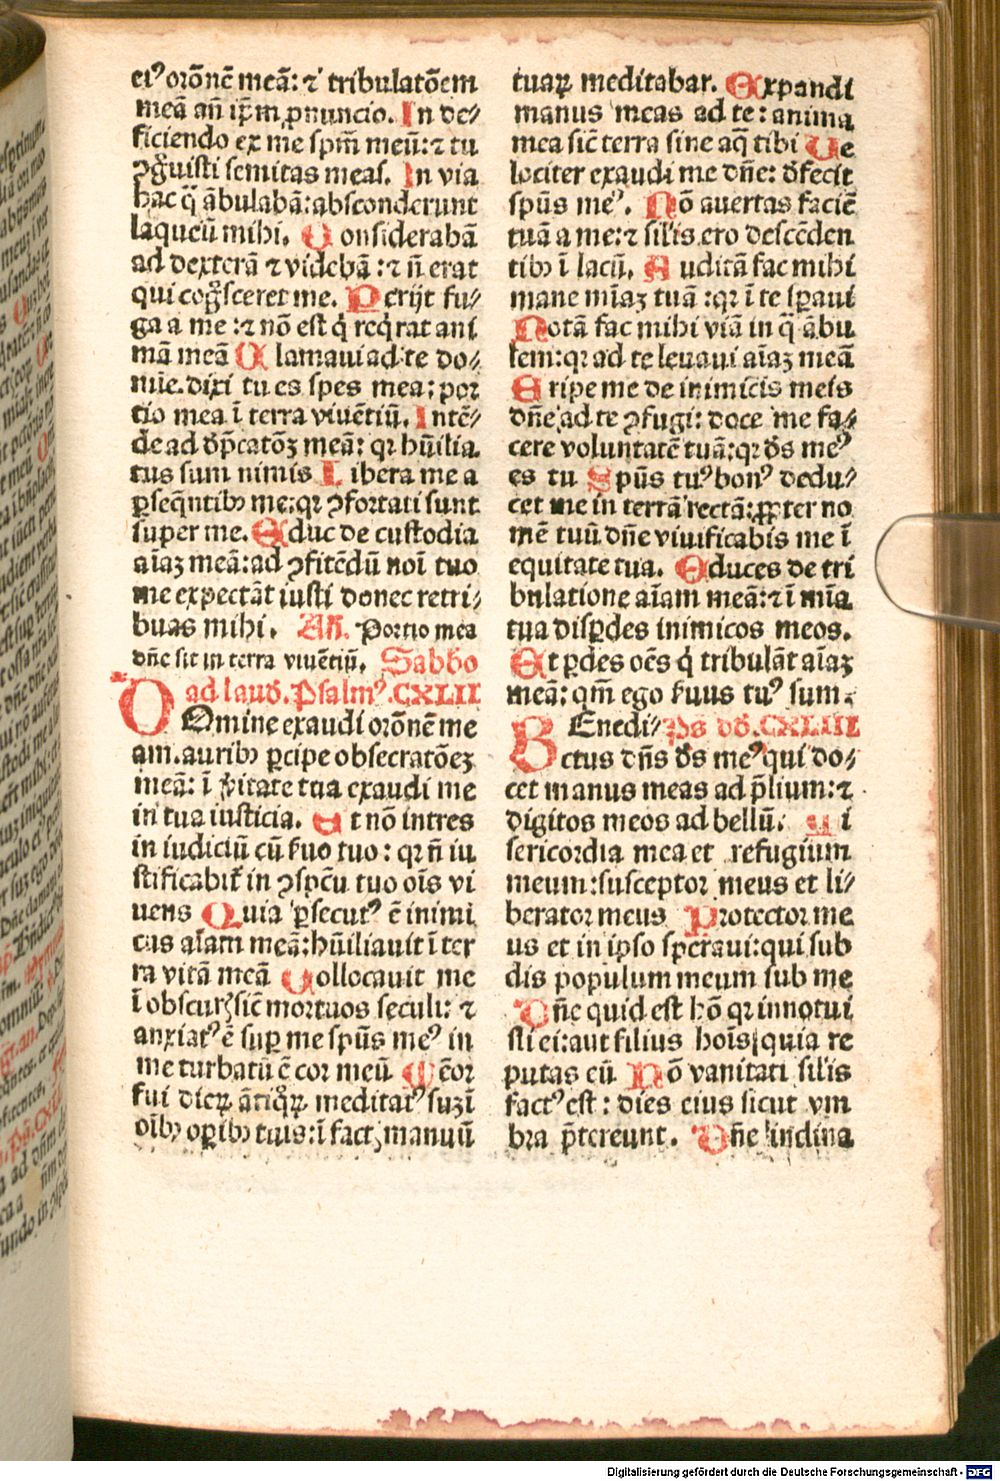 eiꝰ orōnē meā: ⁊ tribulatōem
meā añ ip̄m ꝓnuncio. In de⸗
ficiendo ex me spm̄ meū: ⁊ tu
ꝯgͦuisti semitas meas. In via
hac q̄ ābulabā: absconderunt
laqueū mihi. Considerabā
ad dexterā ⁊ videbā: ⁊ ñ erat
qui cogͦsceret me. Perijt fu⸗
ga a me: ⁊ nō est q̇ reqͥrat ani
mā meā Clamaui ad te do⸗
mīe. dixi tu es spes mea: por
tio mea ī terra viuētiū. Intē⸗
de ad dp̄catōꝫ meā: qꝛ hūilia
tus sum nimis Libera me a
ꝑseq̄ntibꝰ me: qꝛ ꝯfortati sunt
super me. Educ de custodia
aīaꝫ meā: ad ꝯfitēdū noī tuo
me expectāt iusti donec retri⸗
buas mihi. Añ. Portio mea
dñe sit in terra viuētiū. Sabbo
ad laud. Psalmꝰ. CXLII
DOmine exaudi orōnē me
am. auribꝰ ꝑcipe obsecratōeꝫ
meā: ī v̓itate tua exaudi me
in tua iusticia. Et nō intres
in iudiciū cū s̓uo tuo: qꝛ ñ iu
stificabit̉ in ꝯspc̄u tuo oīs vi
uens Quia ꝑsecutꝰ ē inimi
cus aīam meā: hūiliauit ī ter
ra vitā meā Collocauit me
ī obscurꝭ sic̄ mortuos seculi: ⁊
anxiatꝰ ē suꝑ me spūs meꝰ in
me turbatū ē cor meū Mēor
fui dieꝝ ātiqͦꝝ meditatꝰ suꝫ ī
oībꝰ oꝑibꝰ tuis: ī factꝭ manuū
tuaꝝ meditabar. Expandi
manus meas ad te: anima
mea sic̄ terra sine aq̄ tibi Ve
lociter exaudi me dñe: dfecit
spūs meꝰ. Nō auertas faciē
tuā a me: ⁊ silis ero descēden
tibꝰ ī lacū. Auditā fac mihi
mane mīaꝫ tuā: qꝛ ī te sꝑaui
Notā fac mihi viā in q̄ ābu
lem: qꝛ ad te leuaui aīaꝫ meā
Eripe me de inimicis meis
dñe ad te ꝯfugi: doce me fa⸗
cere voluntatē tuā: qꝛ ds̄ meꝰ
es tu Spūs tuꝰ bonꝰ dedu⸗
cet me in terrā rectā: ꝓpter no
mē tuū dñe viuificabis me ī
equitate tua. Educes de tri
bulatione aīam meā: ⁊ ī mīa
tua disꝑdes inimicos meos.
Et ꝑdes oēs q̇ tribulāt aīaꝫ
meā: qm̄ ego s̓uus tuꝰ sum.
BEnedi⸗ Ps̄ dd. CXLIII
ctus dñs ds̄ meꝰ qui do⸗
cet manus meas ad p̄lium: ⁊
digitos meos ad bellū. Mi
sericordia mea et refugium
meum: susceptor meus et li⸗
berator meus Protector me
us et in ipso speraui: qui sub
dis populum meum sub me
Dñe quid est hō qꝛ innotui
sti ei: aut filius hoīs quia re
putas eū Nō vanitati silis
factꝰ est: dies eius sicut vm
bra p̄tereunt. Dñe inclina
Digitalisierung gefördert durch die Deutsche Forschungsgemeinschaft - DFG